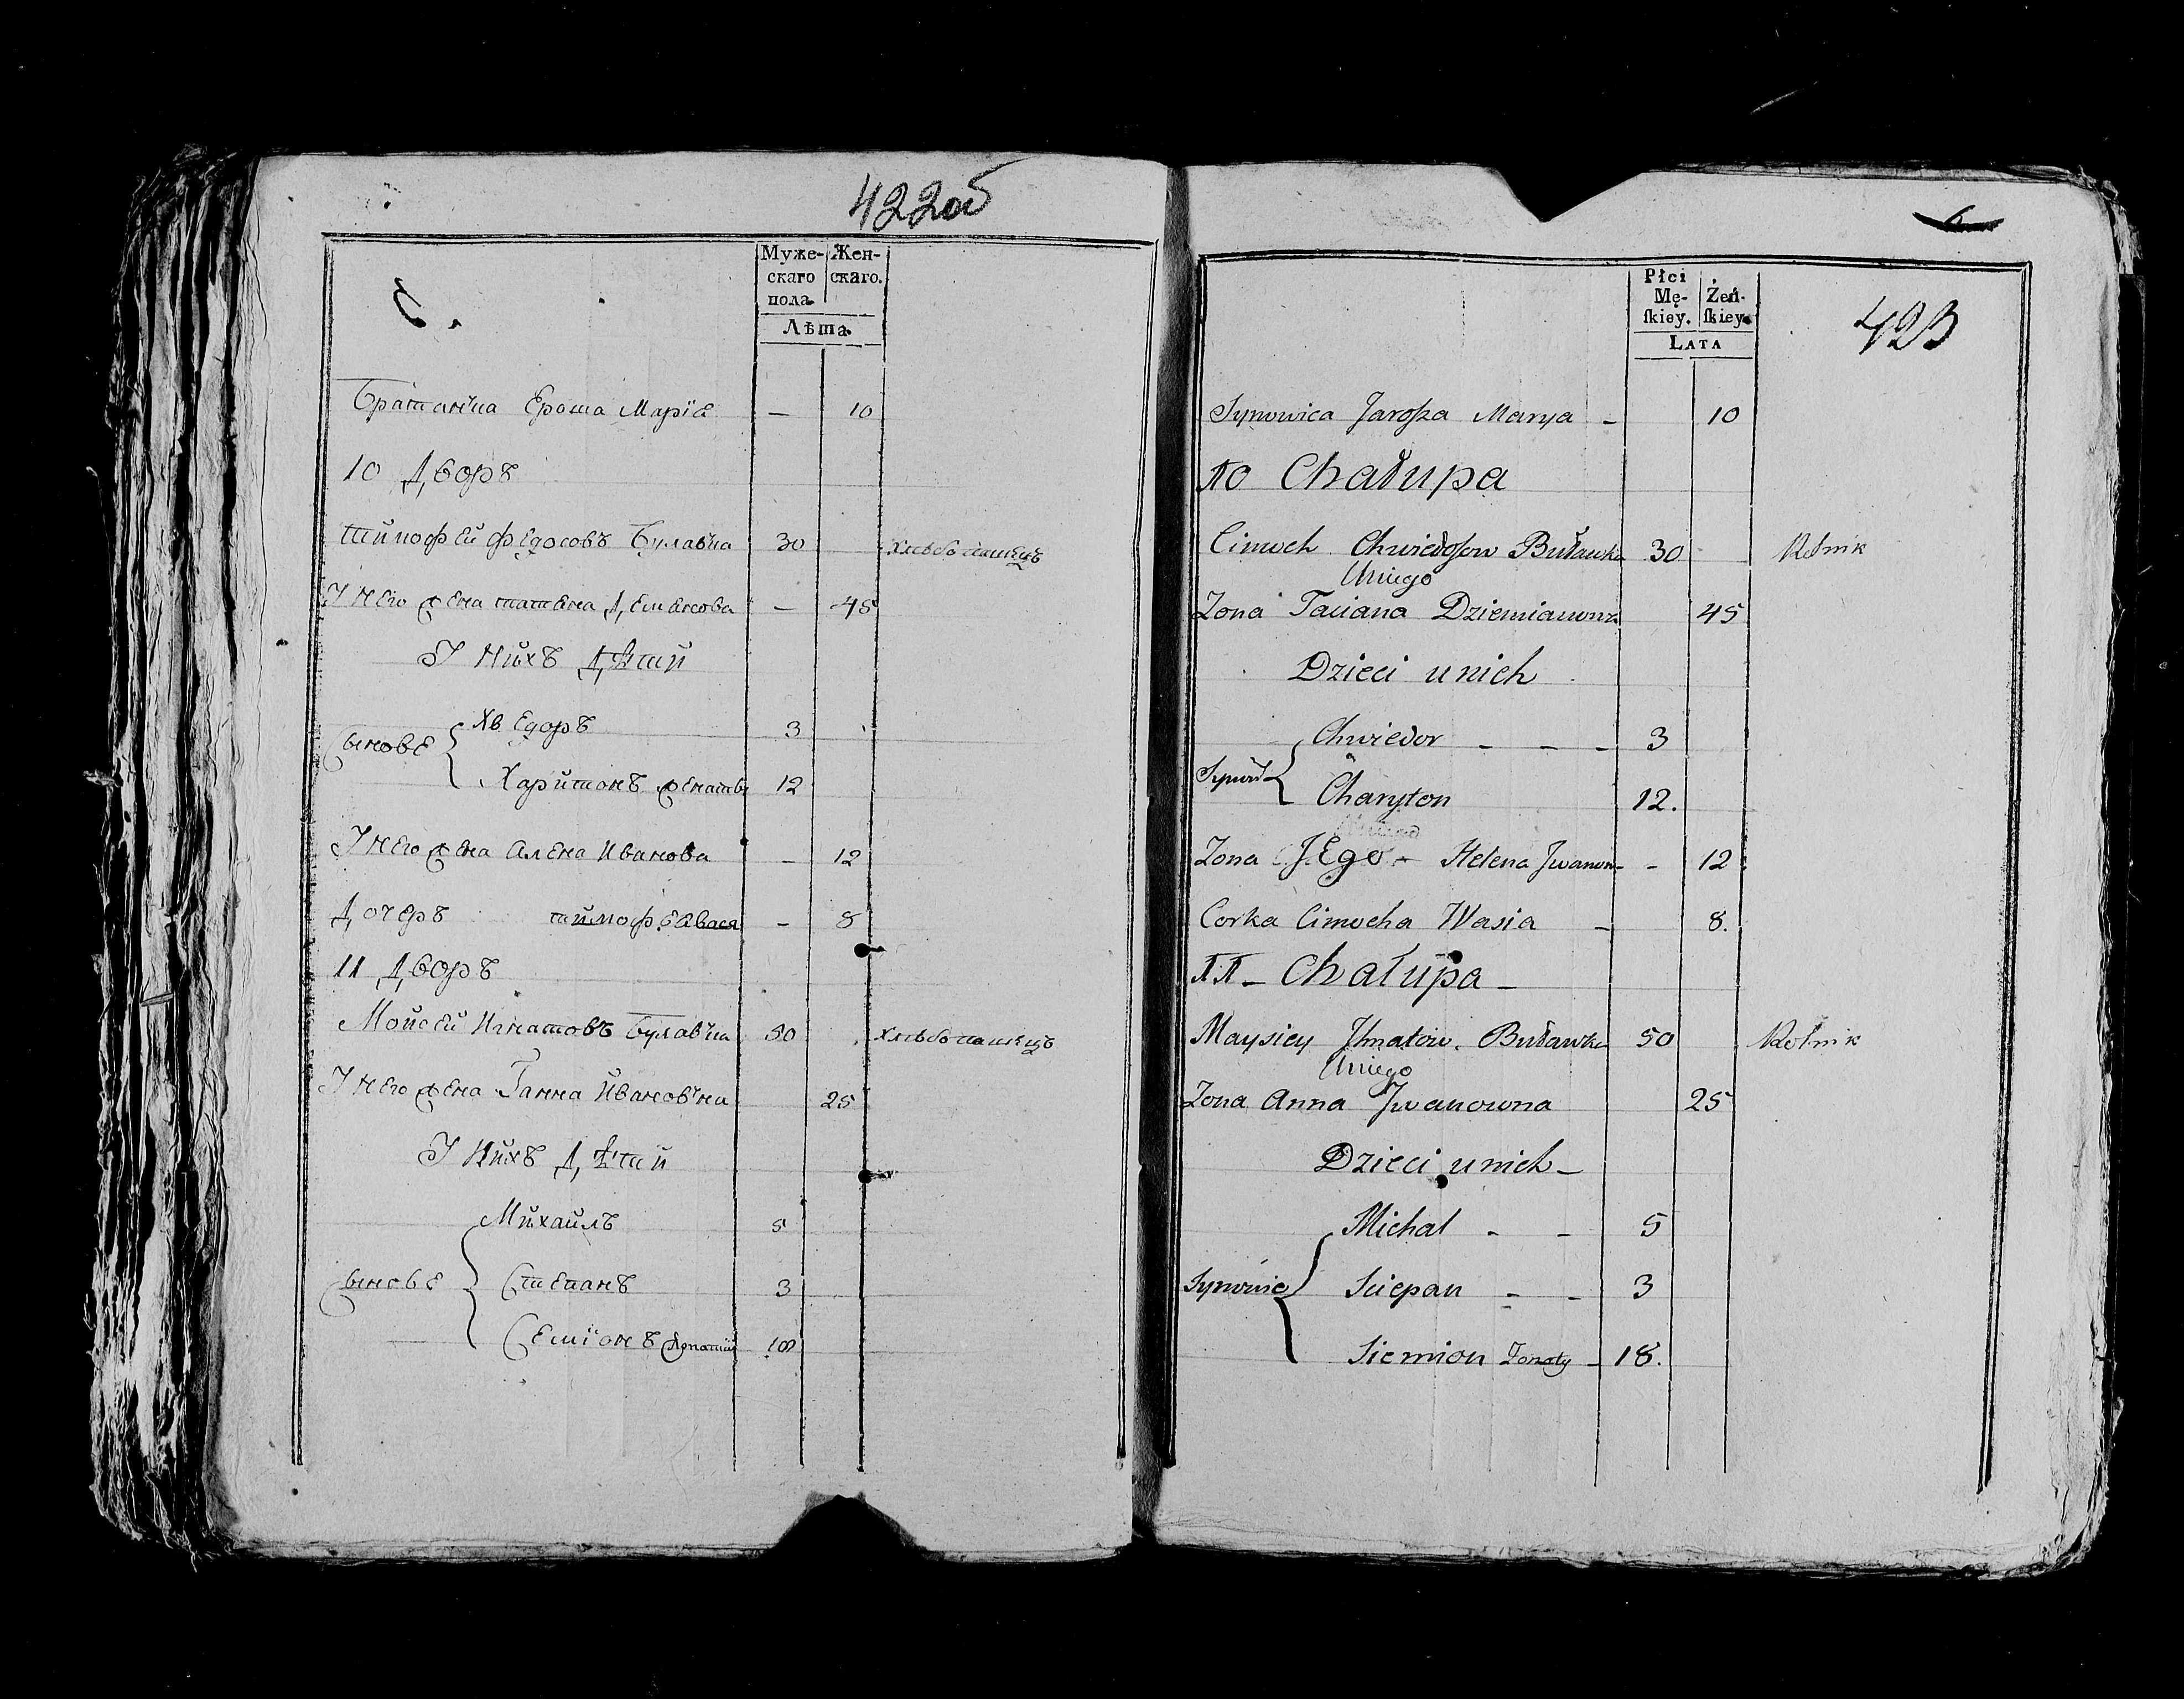 422об
Муже- Жен-
скаго скаго.
пола.
Лѣта.
Братанка Ероша Маріа — 10
10 Дворъ
Тимофей Федосовъ Булавка 30 Хлѣбопашецъ
У него жена Татьяна Демьянова — 45
У нихъ дѣти
Хведоръ 3
Сынове
Харитонъ женаты 12
У него жена Алена Иванова — 12
Дочерь Тимофея Вася — 8
11 Дворъ
Мойсей Игнатовъ Булавка 50 Хлѣбопашецъ
У него жена Ганна Ивановна 25
У нихъ дѣти
Михайлъ 5
Сынове Степанъ 3
Семіонъ 18
6
Płci
Mę- Żeń-
ſkiey. ſkiey.
LATA
423
Synowica Jaroſza Marya – 10
10 Chałupa
Cimoch Chwiedoſow Buławka 30 Rolnik
Uniego
Zona Taciana Dziemianowna 45
Dzieci unich
Chwiedor – – – 3
Charyton 12.
Zona JEgo – Helena Jwanow – 12
Corka Cimocha Wasia – 8.
11 – Chałupa –
Maysiey Jhnatow. Buławka 50 Rolnik
Uniego
Zona Anna Jwanowna 25
Dzieci unich –
Michał – – 5
Synowie Sciepan – – 3
Siemion Zonaty – 18.